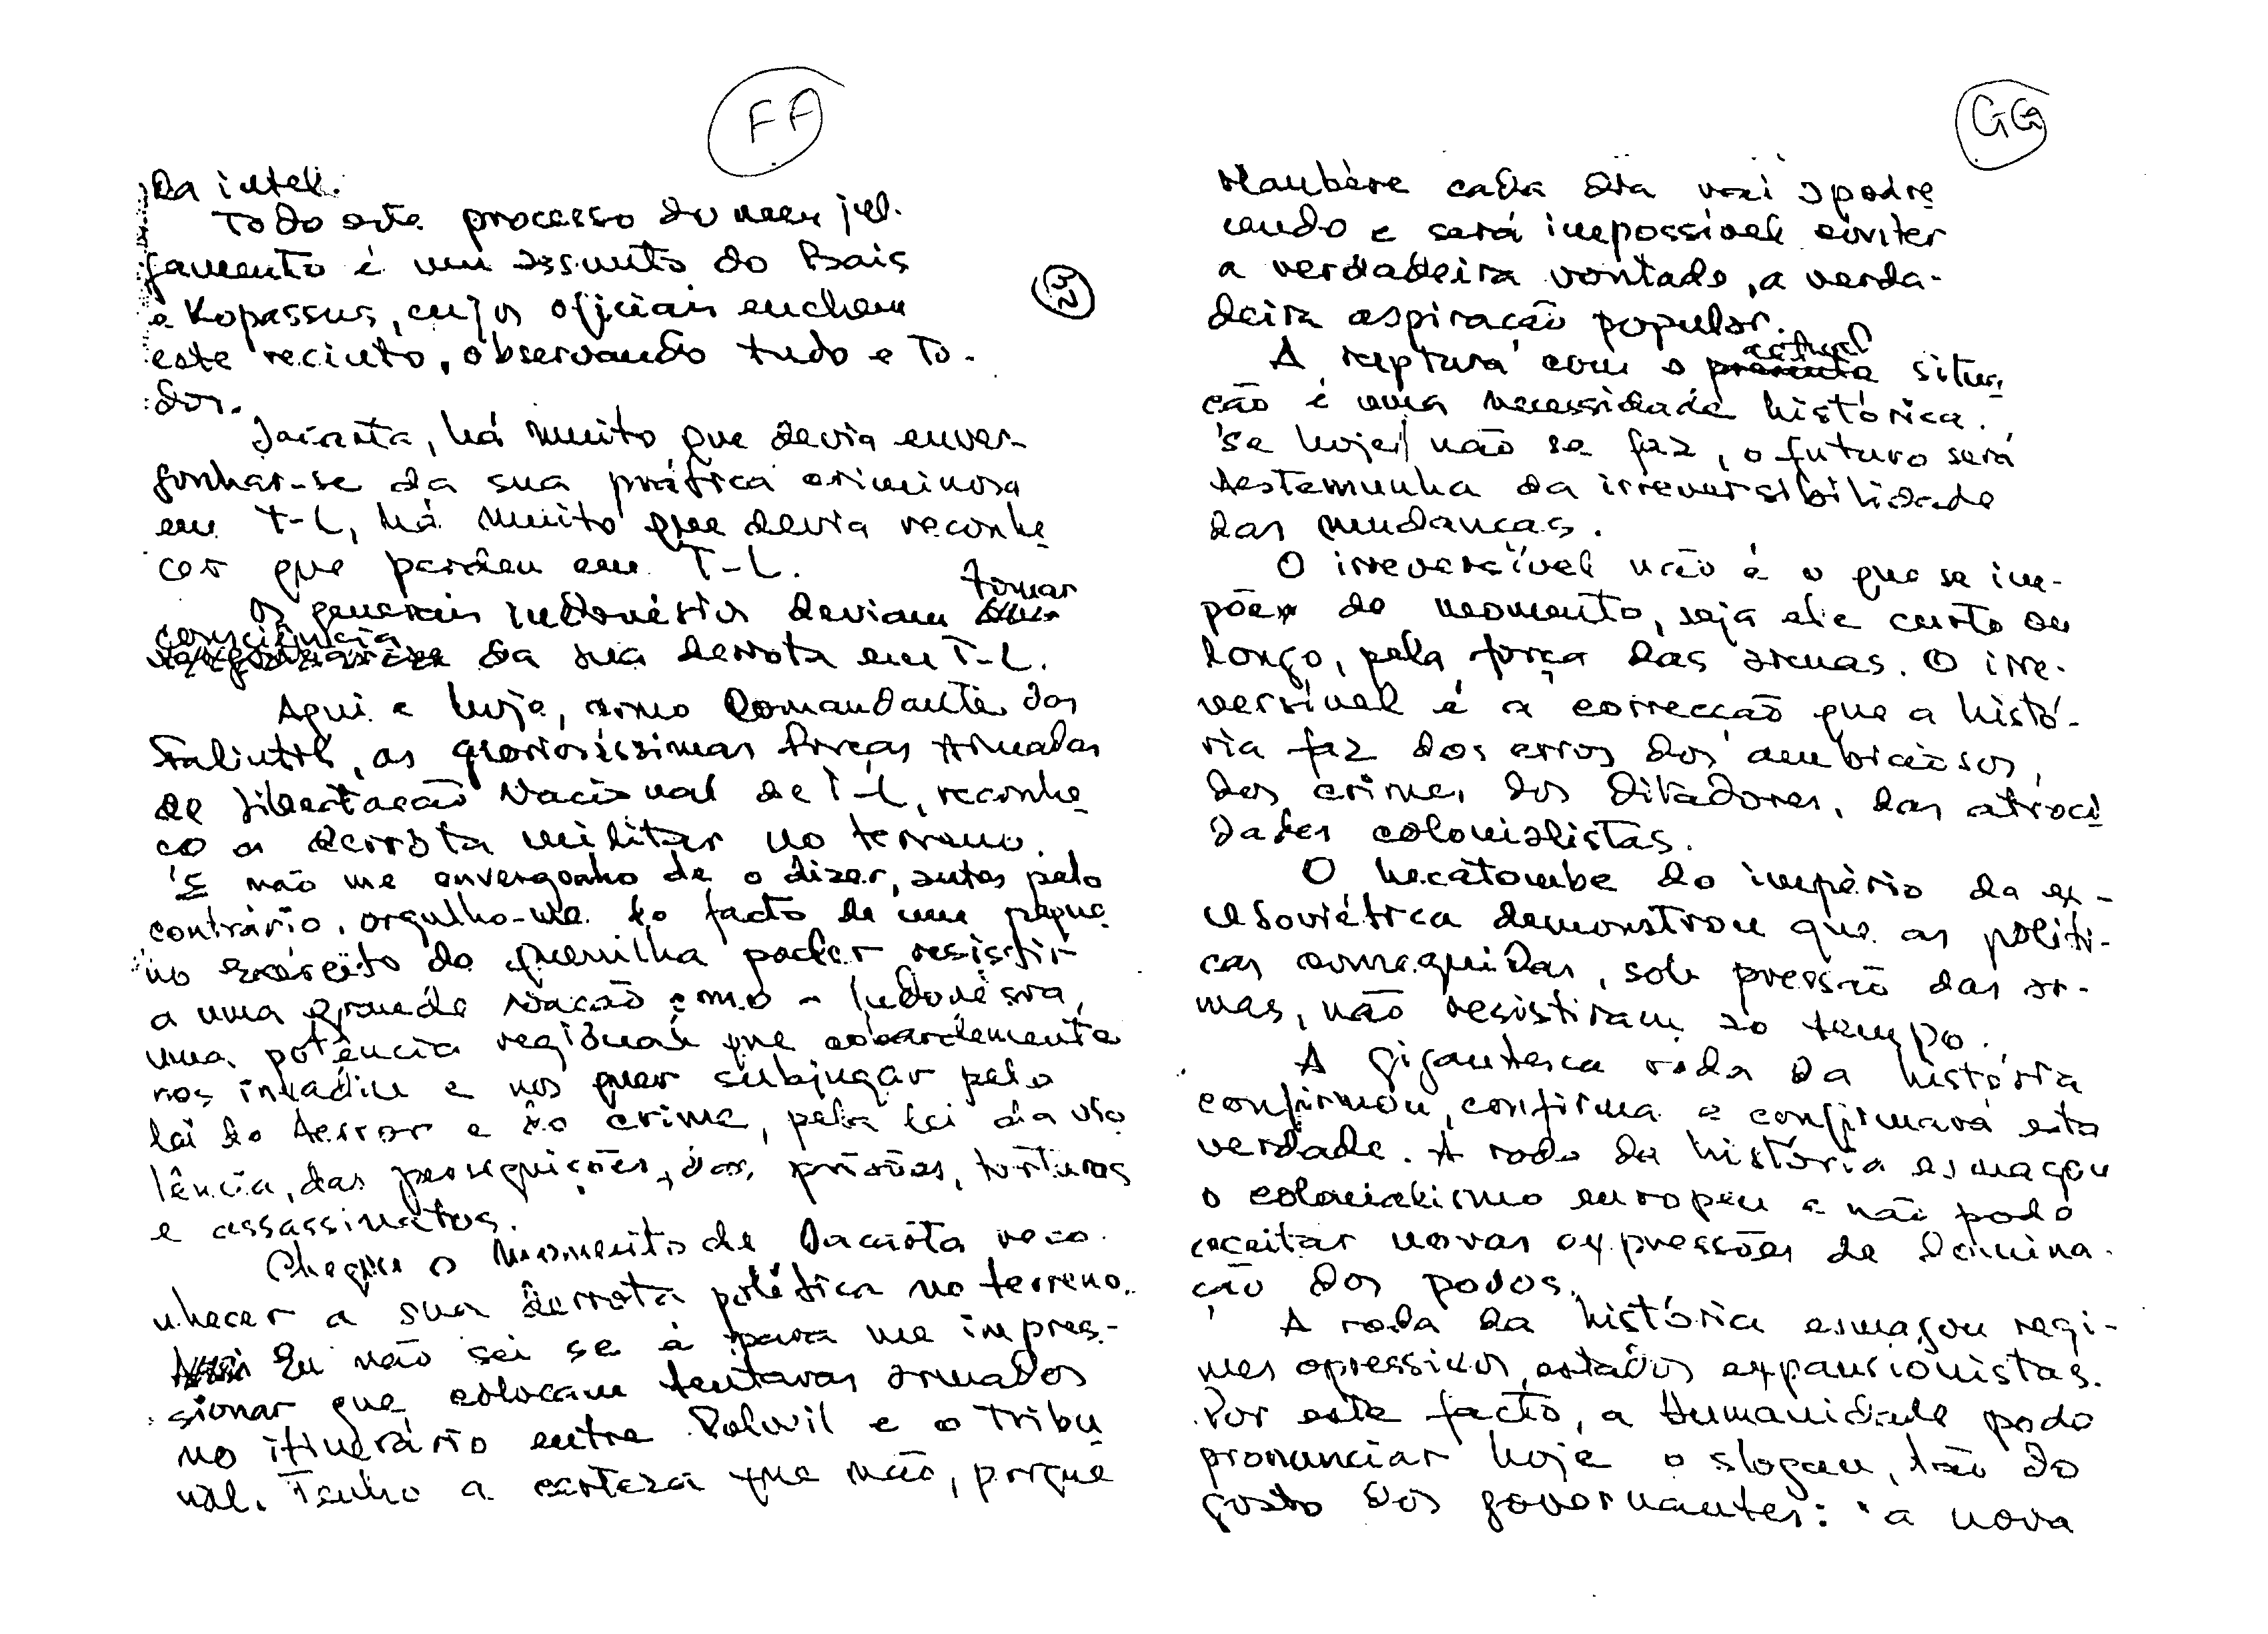 FF
da intel.
Todo este processo do meu jul-
gamento é um assunto do Bais
e Kopassus, cujos oficiais enchem
este recinto, observando tudo e to-
dos.
Jacarta, há muito que devia enver-
gonhar-se da sua prática criminosa
em T-L, há muito que devia reconhe
cer que perdeu em T-L.
Os generais indonésios deviam tomar
consciência da sua derrota em T-L.
Aqui e hoje, como Comandante das
Falintil, as gloriosíssimas Forças Armadas
de Libertação Nacional de T-L, reconhe
ço a derrota militar no terreno.
E não me envergonho de o dizer, antes pelo
contrário, orgulho-me do facto de um peque
no exército de guerrilha poder resistir
a uma grande Nação como a Indonésia,
uma potência regional que cobardemente
nos invadiu e nos quer subjugar pelo
lei do terror e do crime, pela lei da vio
lência, das perseguições, das prisões, torturas
e assassinatos.
Chegou o momento de Jacarta reco-
nhecer a sua derrota política no terreno.
Eu não sei se é para me impres-
sionar que colocam tantas armados
no itinerário entre Polwil e o Tribu
nal. Tenho a certeza que não, porque
32
GG
Maubere cada dia vai apodre
cendo e será impossível evitar
a verdadeira vontade, a verda-
deira aspiração popular.
A ruptura com o actual situa
ção é uma necessidade histórica.
Se hoje não se faz, o futuro será
testemunha da irreversibilidade
das mudanças.
O irreversível não é o que se im-
põe de momento, seja ele curto ou
longo, pela força das armas. O irre-
versível é a correcção que a histó-
ria faz dos erros dos ambiciosos,
dos crimes dos ditadores, das atroci
dades colonialistas.
O hecatombe do império da ex-
U Soviética demonstrou que as políti-
cas conseguidas, sob pressão das ar-
mas, não resistiram ao tempo.
A gigantesca roda da história
confirmou, confirma e confirmará esta
verdade. A roda da história esmagou
o colonialismo europeu e não pode
aceitar novas expressões de domina-
ção dos povos.
A roda da história esmagou regi-
mes opressivos, estados expansionistas.
Por este facto, a Humanidade pode
pronunciar hoje o slogan, tão do
gosto dos governantes: "a nova